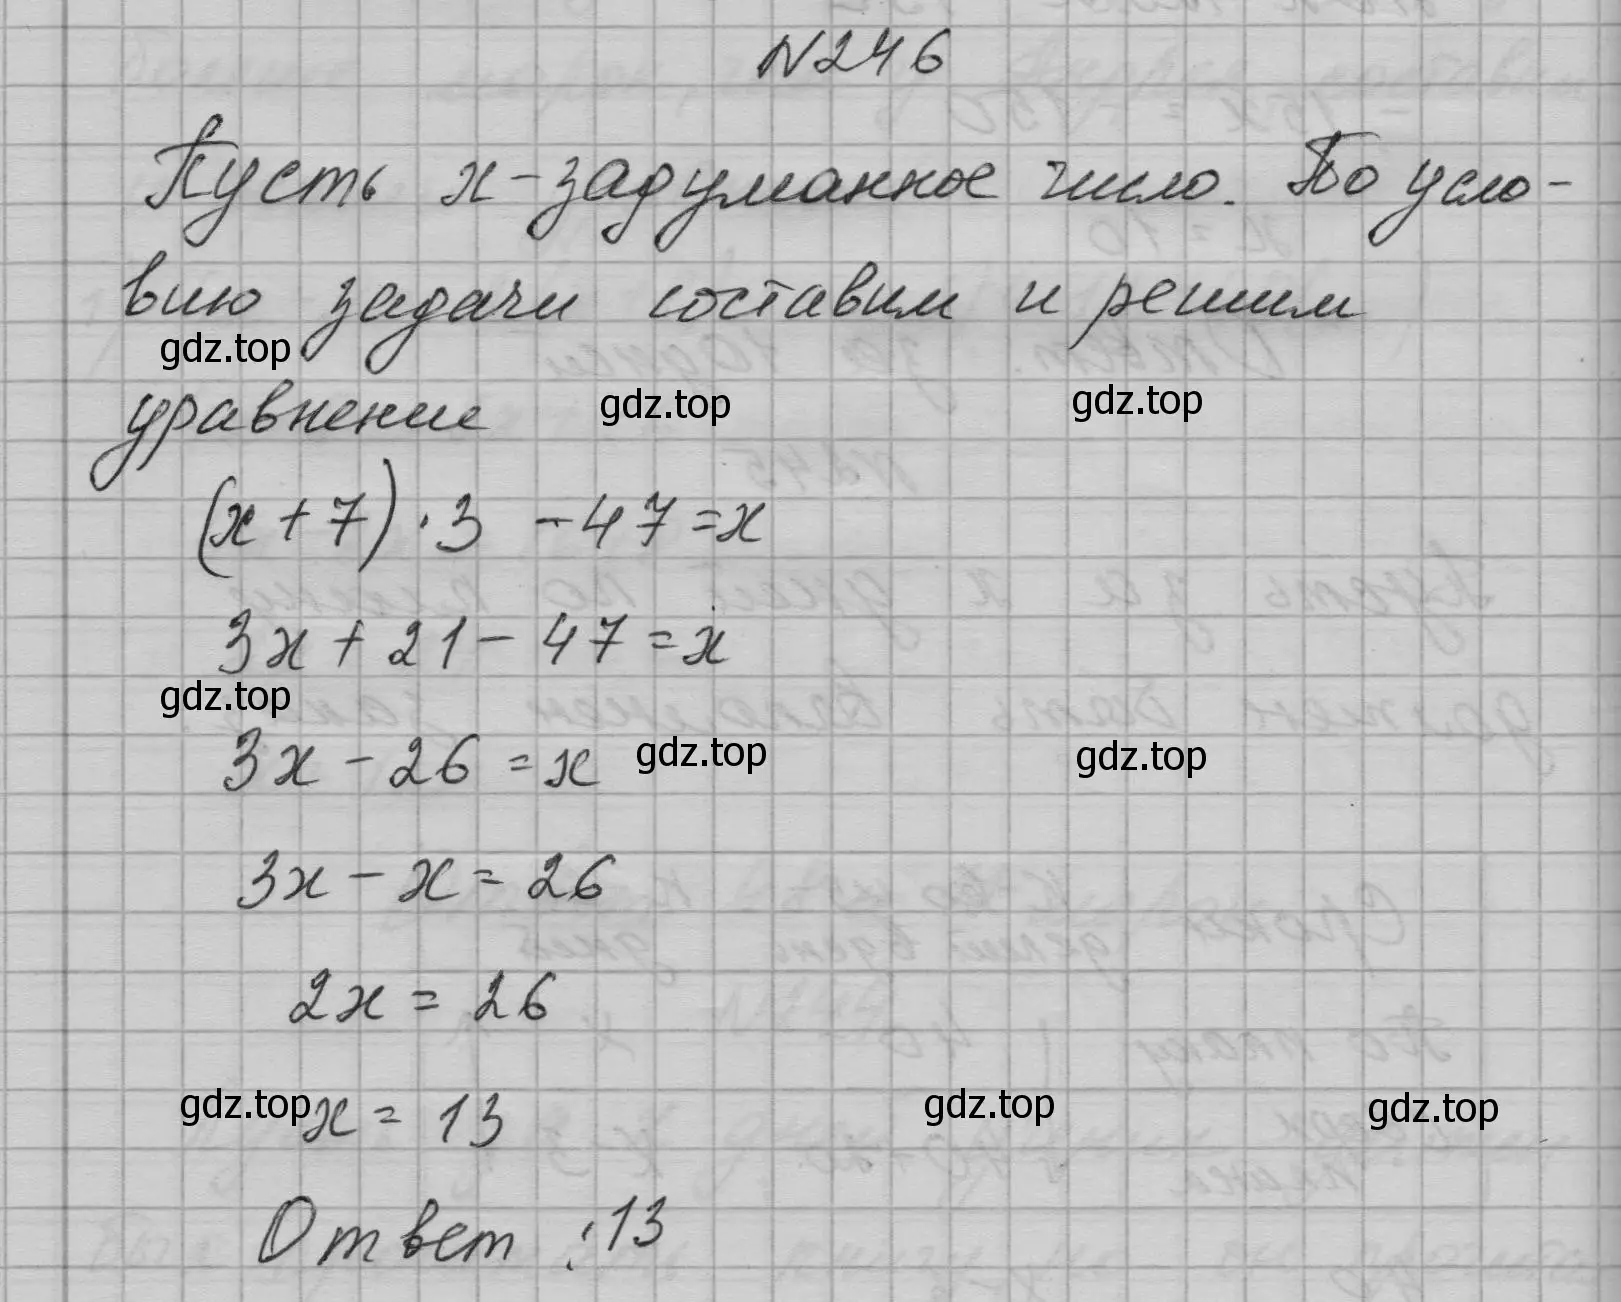 N246
Пусть x-задуманное число. По усло-
вию задачи составим и решим
gdz.top
уравнение gdz.top gdz.top
(x+7)·3 -47=x
3x+21-47=x
gdz.top
3x-26=x gdz.top gdz.top
3x-x=26
2x=26
gdz.top x=13 gdz.top gdz.top
Ответ:13